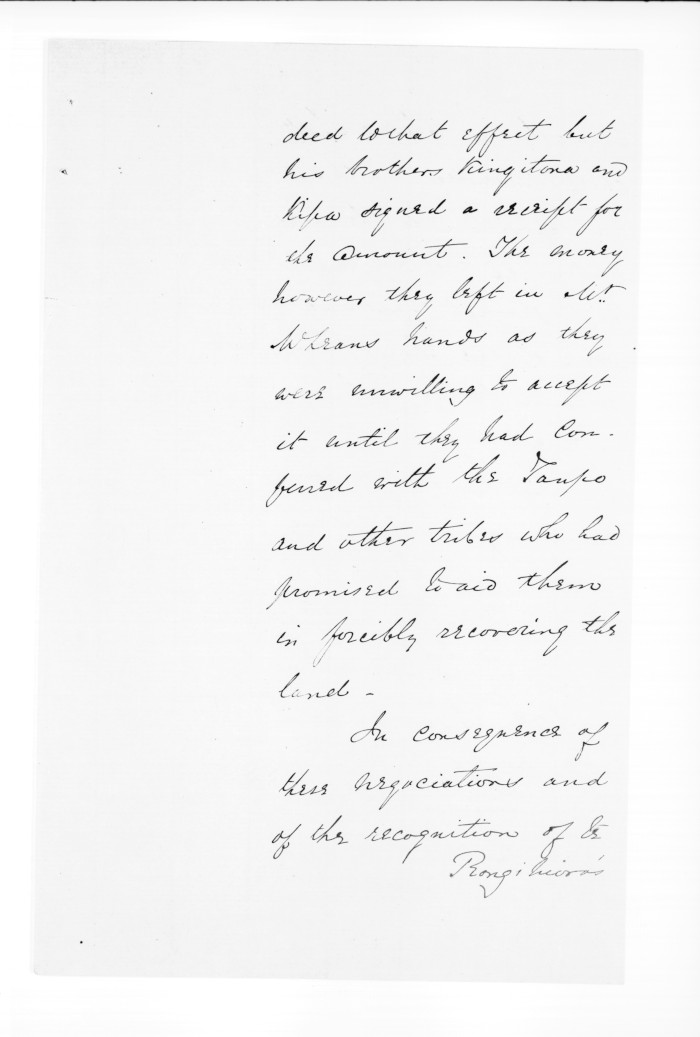 deed to that effect but
his brothers Kingitona and
Kipa signed a receipt for
the Amount. The money
however they left in Mr.
McLeans hands as they
were unwilling to accept
it until they had Con-
ferred with the Taupo
and other tribes who had
promised to aid them
in forcibly recovering the
land -
In consequence of
these negociations and
of the recognition of Te
Rangihiwi's